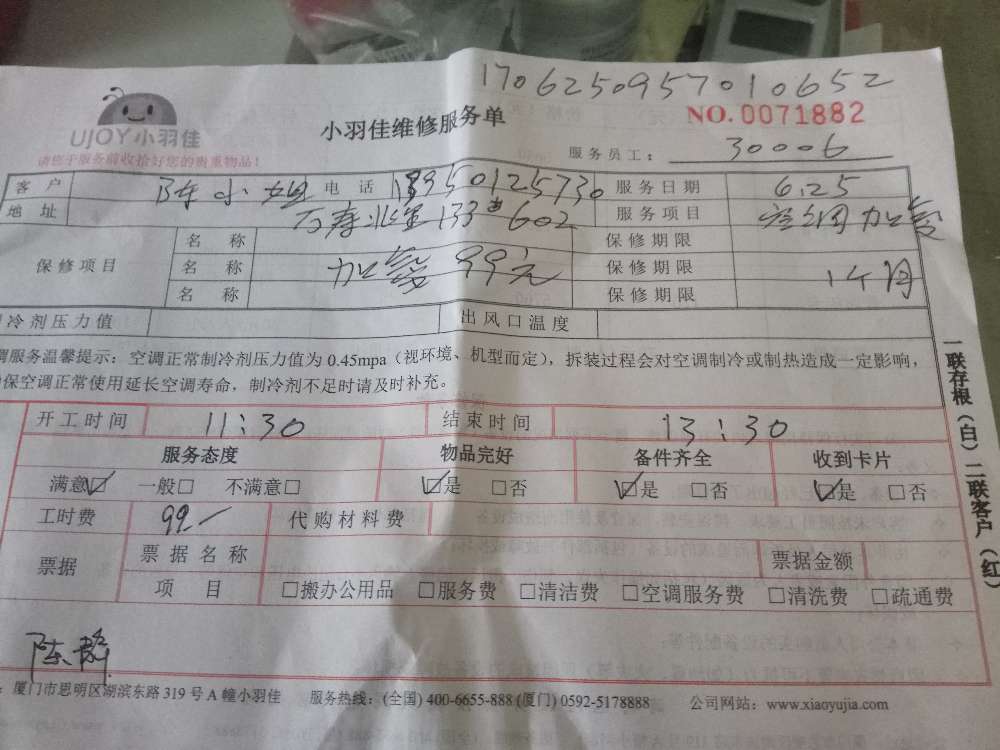 1706250957010652
UJOY小羽佳
小羽佳维修服务单
NO.0071882
请您于服务前收拾好您的贵重物品！
服务员工： 30006
客户 陈小姐 电话 13950125730 服务日期 6.25
地址 万寿北里133#602 服务项目 空调加氨
保修项目 名称 保修期限
名称 加氨 99元 保修期限 1个月
名称 保修期限
冷剂压力值 出风口温度
调服务温馨提示：空调正常制冷剂压力值为 0.45mpa（视环境、机型而定），拆装过程会对空调制冷或制热造成一定影响，
保空调正常使用延长空调寿命，制冷剂不足时请及时补充。
开工时间 11:30 结束时间 13:30
服务态度 物品完好 备件齐全 收到卡片
满意☑ 一般□ 不满意□ ☑是 □否 ☑是 □否 ☑是 □否
工时费 99— 代购材料费
票据 票据名称 票据金额
项目 □搬办公用品 □服务费 □清洁费 □空调服务费 □清洗费 □疏通费
一联存根（白）二联客户（红）
陈静
：厦门市思明区湖滨东路 319 号 A 幢小羽佳 服务热线：(全国) 400-6655-888 (厦门) 0592-5178888 公司网站：www.xiaoyujia.com